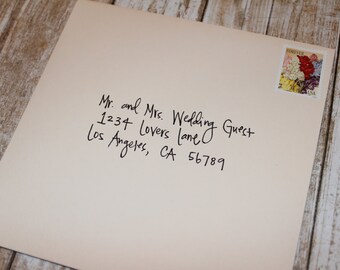 Mr. and Mrs. Wedding Guest
1234 Lovers Lane
Los Angeles, CA 56789